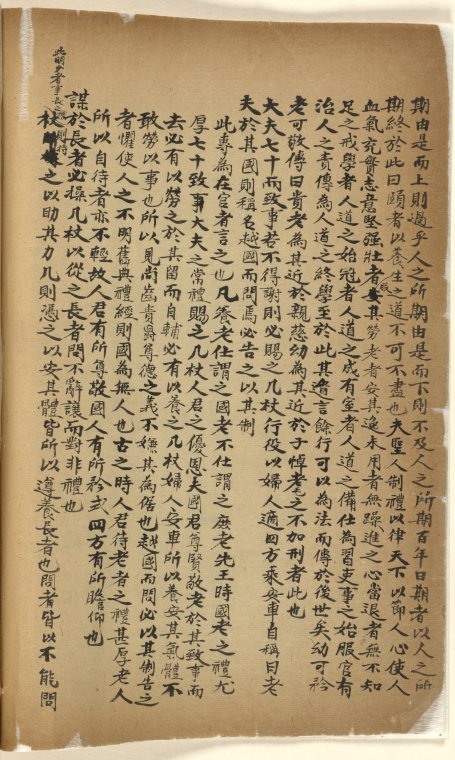 期由是而上則過乎人之所期由是而下則不及人之所期百年曰期者以人之所
期終於此曰頤者以養生之道不可不盡也夫聖人制禮以律天下以節人心使人
血氣充齊志意堅强壯者安其勞老者安其逸未用者無躁進之心當退者無不知
足之戒學者人道之始冠者人道之成有室者人道之備仕為習吏事之始服官有
治人之責傳為人道之終學至於此其言餘行可以為法而傳於後世矣幼可矜
老可敬傳曰貴老為其近於親慈幼為其近於子悼老之不加刑者此也
大夫七十而致事若不得謝則必賜之几杖行役以婦人適四方乘安車自稱曰老
夫於其國則稱名越國而問焉必告之以其制
此專為在官者言之也凡養老仕謂之國老不仕謂之庶老先王時國老之禮尤
厚七十致事大夫之常禮賜之几杖人君之優恩夫國君尊賢敬老於其致事而
去必有以勞之於其留而自輔必有以養之几杖婦人安車所以養安其氣體不
敢勞以事也所以見尚齒貴爵尊德之義不嫌其為倨也越國而問必以其制告之
者懼使人之不明舊典禮經則國為無人也古之時人君待老者之禮甚厚老人
所以自待者亦不輕故人君有所尊敬國人有所矜式四方有所瞻仰也
謀於長者必操几杖以從之長者問不辭讓而對非禮也
此明事長之
杖之以助其力几則憑之以安其體皆所以遵養長者也問者皆以不能問